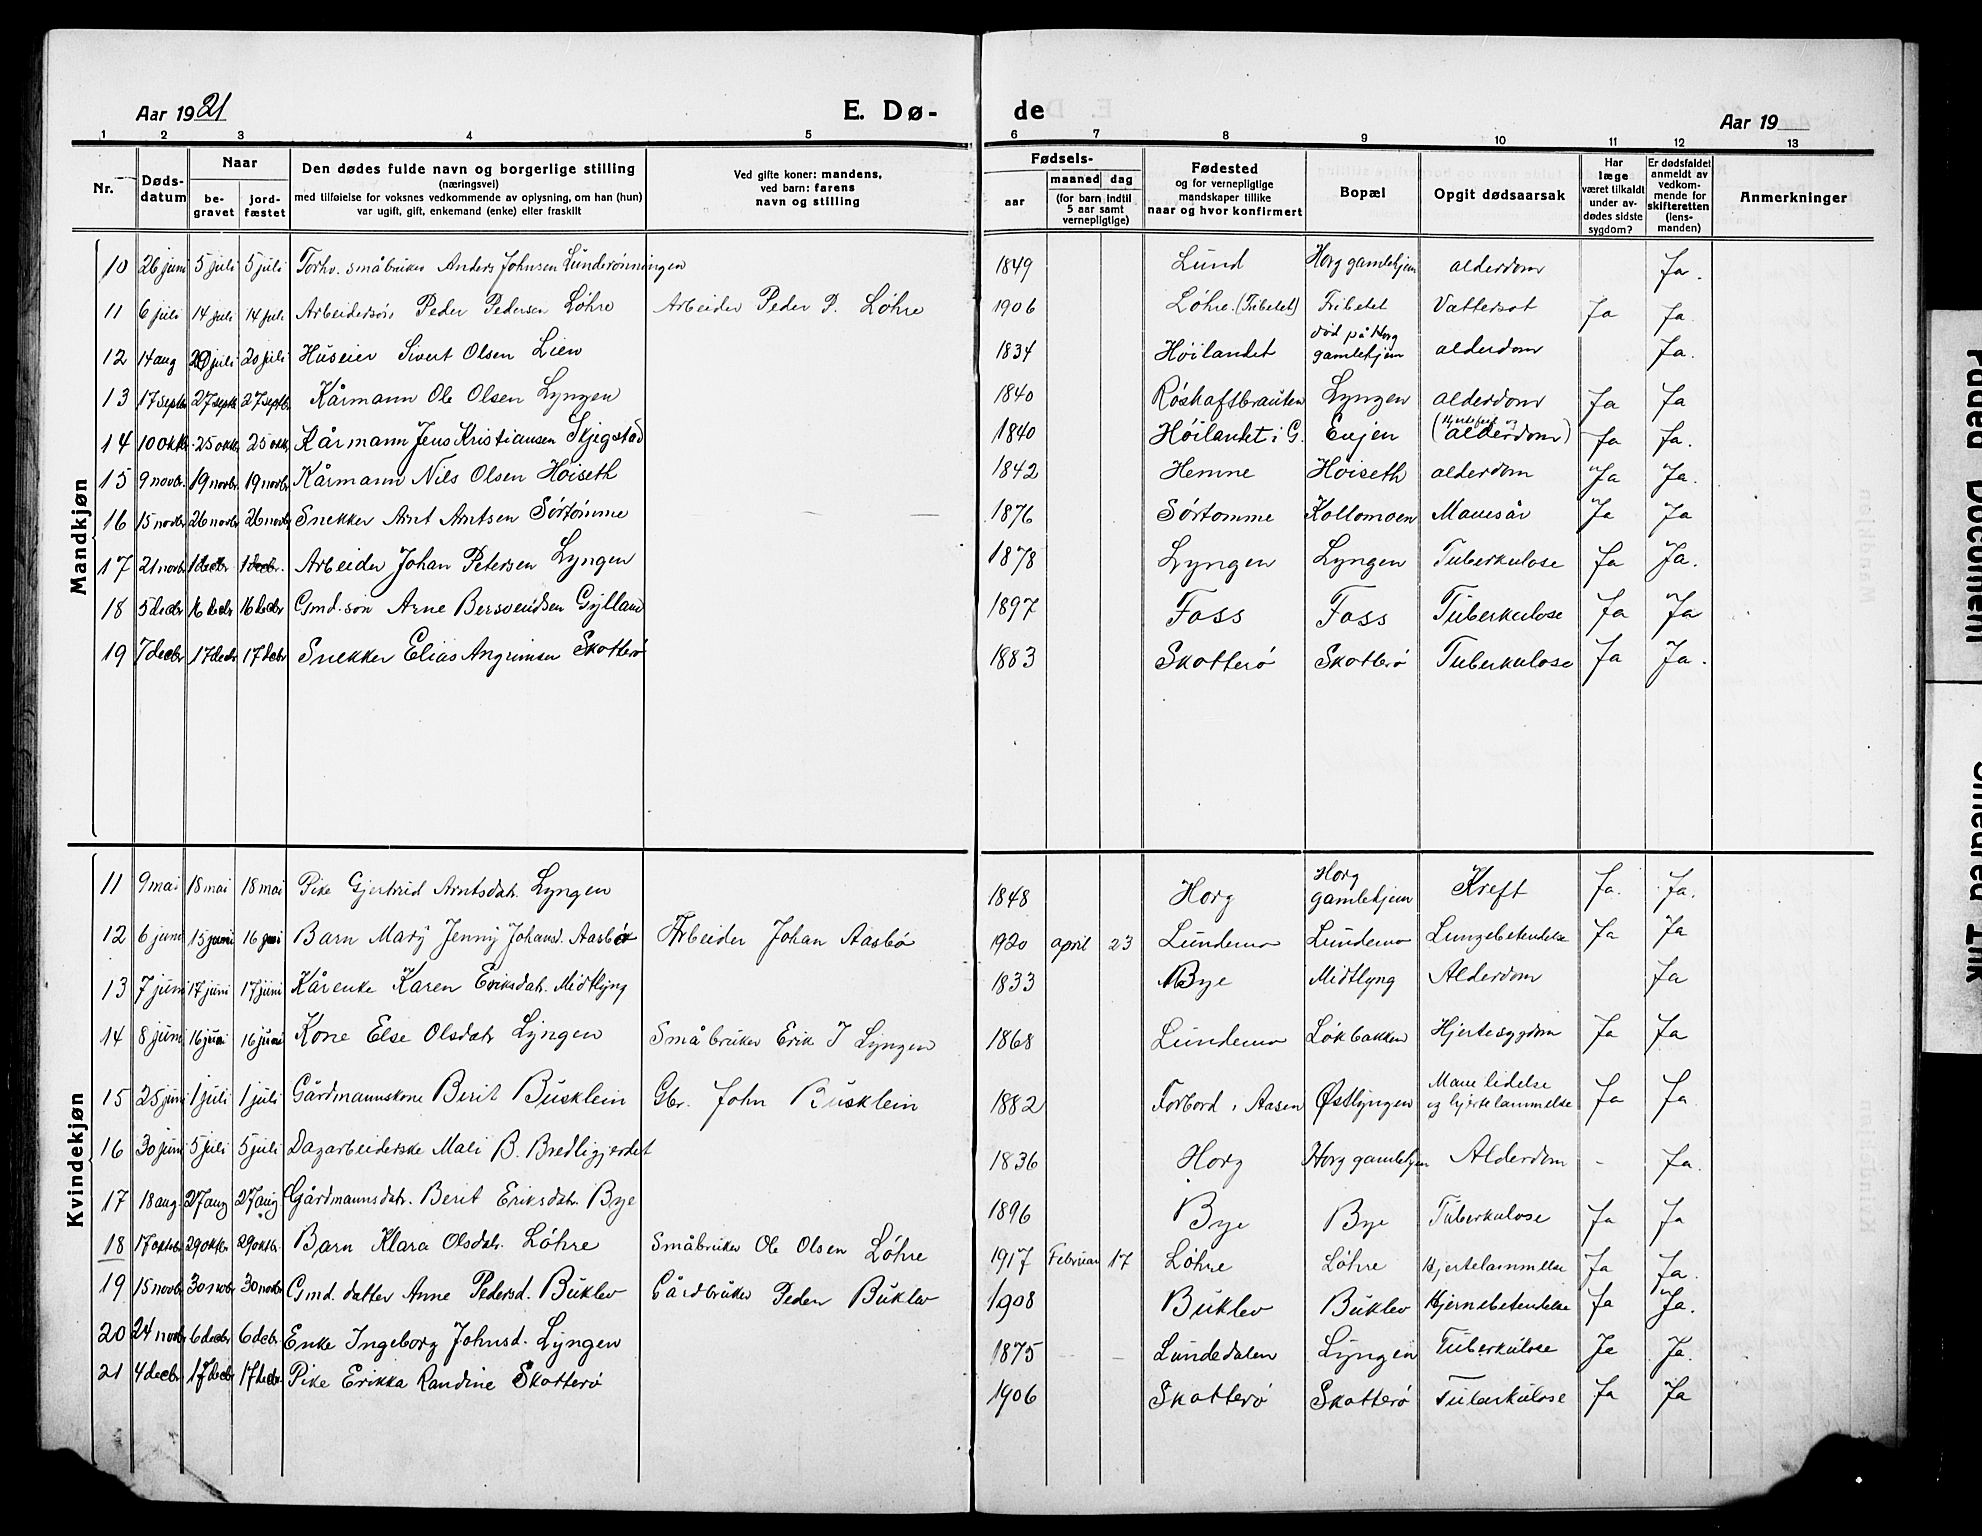 Aar 1921
E. Dø-
de
Aar 19
1 2 3 4 5 6 7 8 9 10 11 12 13
Nr.
Døds-
datum
Naar
be-
gravet
jord-
fæstet
Den dødes fulde navn og borgerlige stilling
(næringsvei)
med tilføielse for voksnes vedkommende av oplysning, om han (hun)
var ugift, gift, enkemand (enke) eller fraskilt
Ved gifte koner: mandens,
ved barn: farens
navn og stilling
Fødsels-
aar
maaned dag
(for barn indtil
5 aar samt
vernepligtige)
Fødested
og for vernepligtige
mandskaper tillike
naar og hvor konfirmert
Bopæl
Opgit dødsaarsak
Har
læge
været tilkaldt
under av-
dødes sidste
sygdom?
Er dødsfaldet
anmeldt av
vedkom-
mende for
skifteretten
(lens-
manden)
Anmerkninger
Mandkjøn
10 26 juni 5 juli 5 juli Forhv. småbruker Anders Johnsen Lunderønningen 1849 Lund Horg gamlehjem alderdom Ja.
11 6 juli 14 juli 14 juli Arbeidersøn Peder Pedersen Løhre Arbeider Peder P. Løhre 1906 Løhre. (Tribetet) Tribetet Vattersot Ja Ja.
12 14 aug 20 juli 20 juli Huseier Sivert Olsen Lien 1834 Høilandet død på Horg gamlehjem alderdom Ja.
13 17 septbr 27 septbr 27 septbr Kårmann Ole Olsen Lyngen 1840 Røskaftbrauten Lyngen alderdom Ja Ja
14 10 oktbr 25 oktbr 25 oktbr Kårmann Jens Kristiansen Skjegstad 1840 Høilandet i G. Enjen (Hjertefeil og alderdom) Ja Ja.
15 9 novbr. 19 novbr. 19 novbr. Kårmann Nils Olsen Høiseth 1842 Hemne Høiseth alderdom Ja Ja.
16 15 novbr 26 novbr 26 novbr Snekker Arnt Arntsen Sørtømme 1876 Sørtømme Kollomoen Mavesår Ja Ja
17 21 novbr 1 decbr 1 decbr. Arbeider Johan Petersen Lyngen 1878 Lyngen Lyngen Tuberkulose Ja Ja.
18 5 decbr 16 decbr 16 decbr Gmd. søn Arne Bersvendsen Gylland 1897 Foss Foss Tuberkulose Ja Ja
19 7 decbr 17 decbr 17 decbr Snekker Elias Angrimsen Skotterø 1883 Skotterø Skotterø Tuberkulose Ja Ja.
Kvindekjøn
11 9 mai 18 mai 18 mai Pike Gjertrud Arntsdatr. Lyngen 1848 Horg Horg gamlehjem Kreft Ja. Ja.
12 6 juni 15 juni 16 juni Barn Mary Jenny Johansd. Aasbø Arbeider Johan Aasbø 1920 april 23 Lundemo Lundemo Lungebetendelse Ja Ja.
13 7 juni 17 juni 17 juni Kårenke Karen Eriksdatr. Midtlyng 1833 Bye Midtlyng Alderdom Ja
14 8 juni 16 juni 16 juni Kone Else Olsdatr Lyngen Småbruker Erik J Lyngen 1868 Lundemo Løkbakken Hjertesygdom Ja Ja
15 25 juni 1 juli 1 juli Gårdmannskone Berit Busklein Gbr. John Busklein 1882 Forbord i Aasen Østlyngen Mavelidelse og hjertelammelse Ja Ja.
16 30 juni 5 juli 5 juli Dagarbeiderske Mali B. Bredligjerdet 1836 Horg Horg gamlehjem Alderdom - Ja.
17 18 aug. 27 aug 27 aug Gårdmannsdatr. Berit Eriksdatr. Bye 1896 Bye Bye Tuberkulose Ja Ja
18 17 oktbr 29 oktbr 29 oktbr. Barn Klara Olsdatr. Løhre Småbruker Ole Olsen Løhre 1917 Februar 17 Løhre Løhre Hjertelammelse Ja Ja.
19 15 novbr 30 novbr 30 novbr Gmd. datter Anne Pedersd. Buklev Gårdbruker Peder Buklev 1908 Buklev Buklev Hjernebetendelse Ja Ja.
20 24 novbr 6 decbr 6 decbr. Enke Ingeborg Johnsd. Lyngen 1875 Lundedalen Lyngen Tuberkulose Ja Ja.
21 4 decbr 17 decbr 17 decbr Pike Erikka Randine Skotterø 1906 Skotterø Skotterø Tuberkulose Ja Ja
Faded Document
Smeared Ink